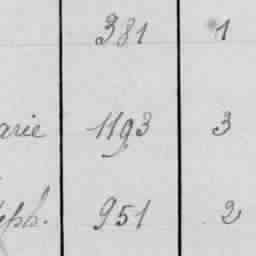 381 1
arie 1193 3
eph. 951 2